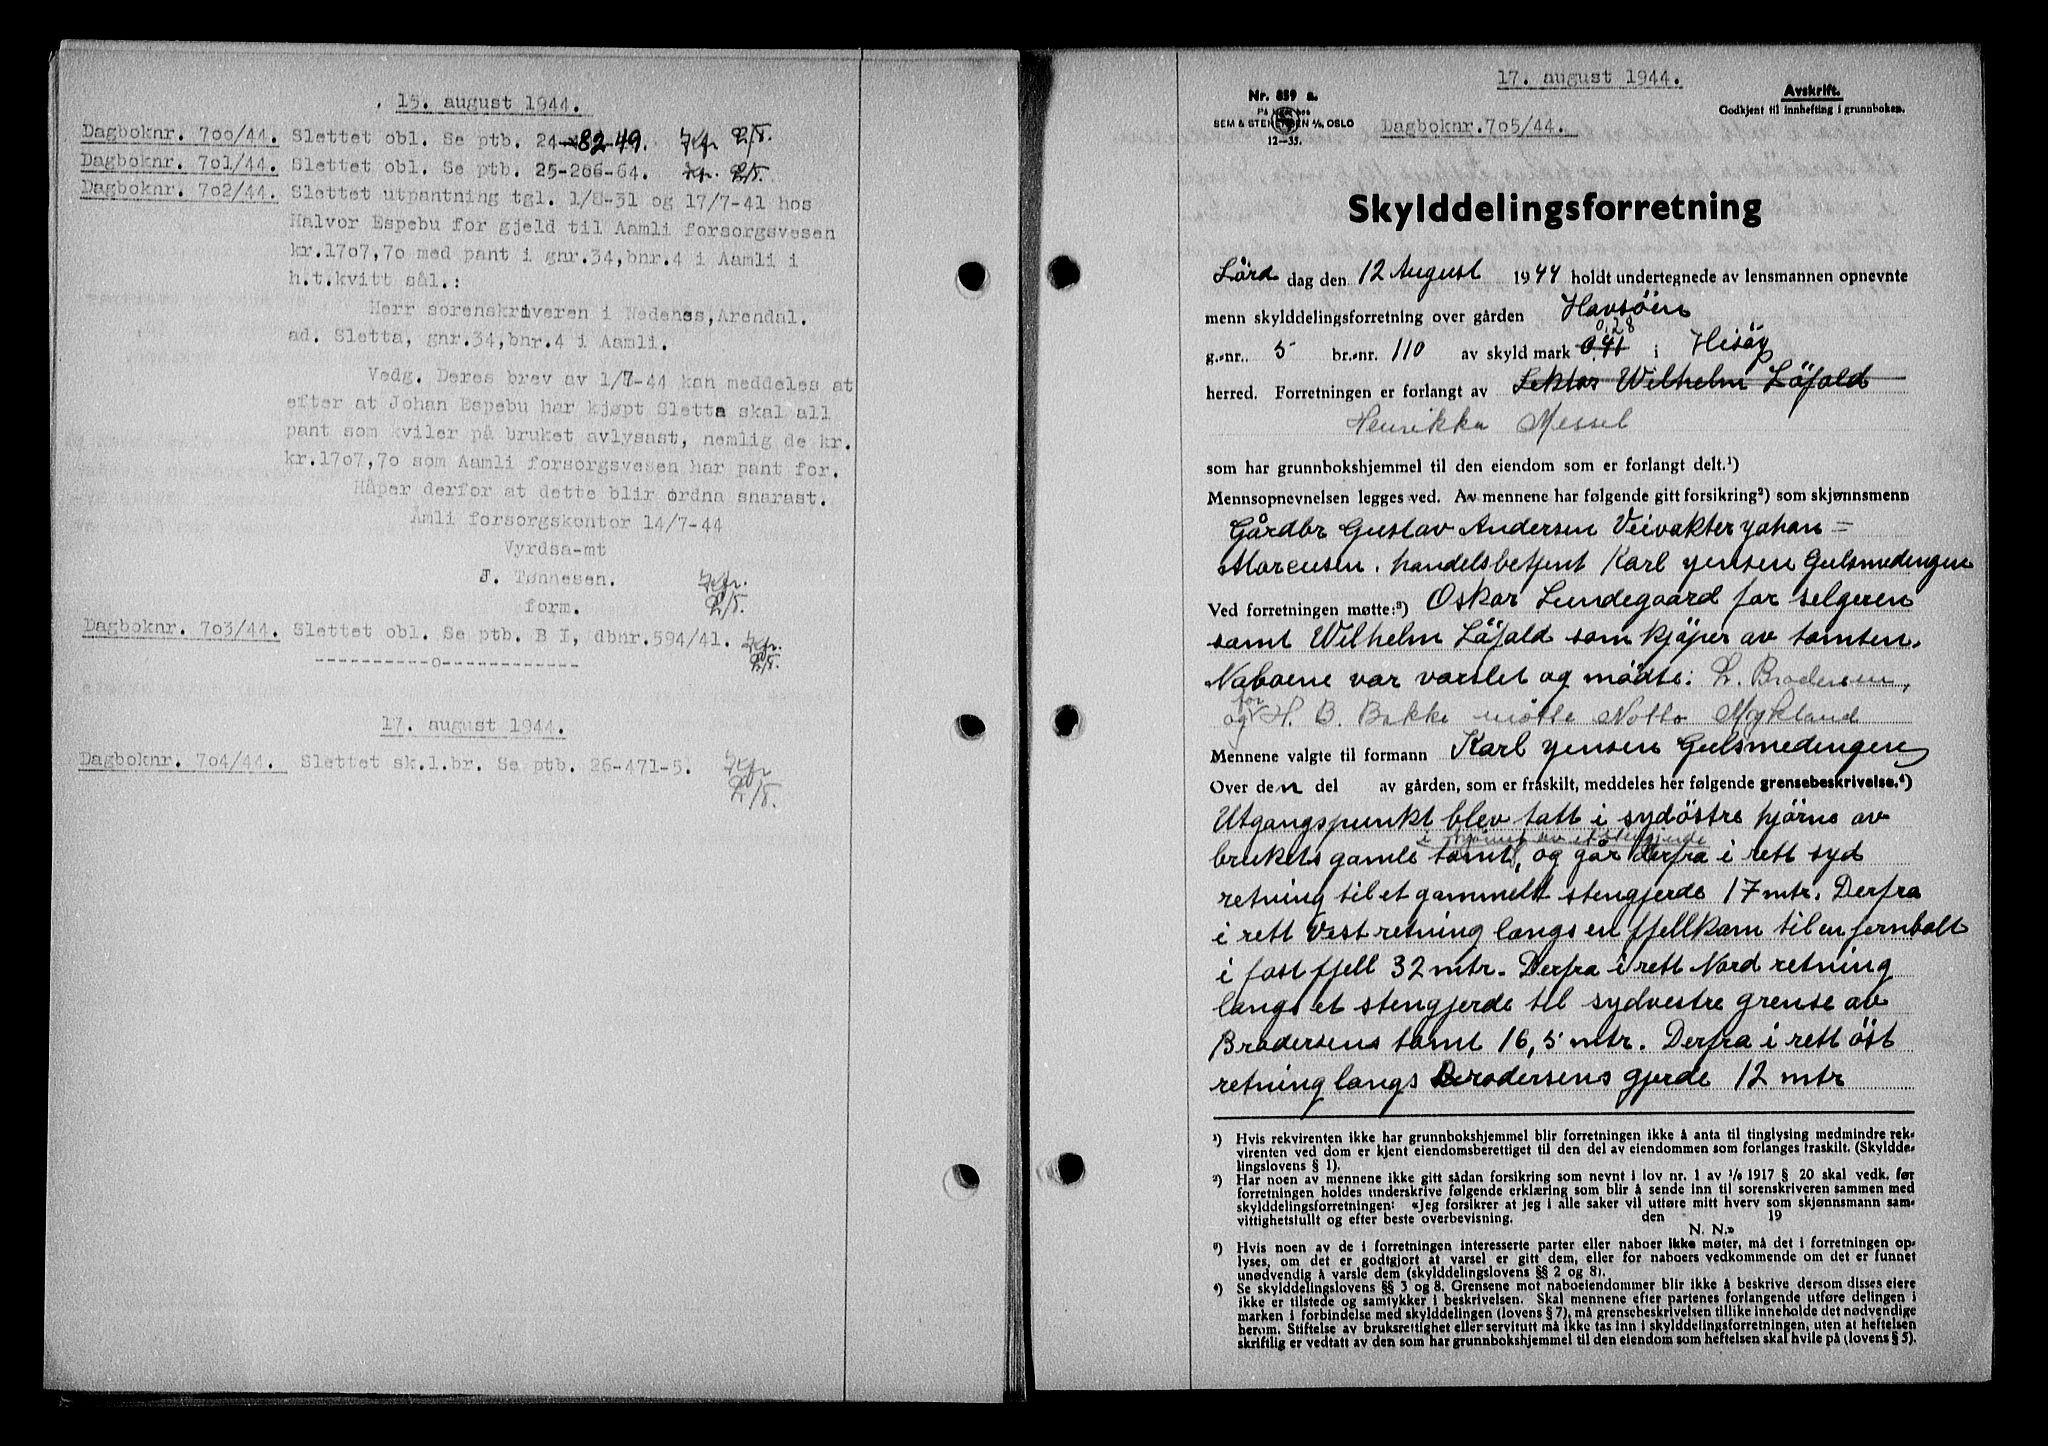 15. august 1944.
Dagboknr. 700/44. Slettet obl. Se ptb. 24-82-49.
Dagboknr. 701/44. Slettet obl. Se ptb. 25-206-64.
Dagboknr. 702/44. Slettet utpantning tgl. 1/8-31 og 17/7-41 hos
Halvor Espebu for gjeld til Aamli forsorgsvesen
kr.1707,70 med pant i gnr.34,bnr.4 i Aamli i
h.t.kvitt sål.:
Herr sorenskriveren i Nedenes,Arendal.
ad. Sletta, gnr.34,bnr.4 i Aamli.
Vedg. Deres brev av 1/7-44 kan meddeles at
efter at Johan Espebu har kjøpt Sletta skal all
pant som kviler på bruket avlysast, nemlig de kr.
kr.1707,70 som Aamli forsorgsvesen har pant for.
Håper derfor at dette blir ordna snarast.
Åmli forsorgskontor 14/7-44
Vyrdsa-mt
J. Tønnesen.
form.
Dagboknr. 703/44. Slettet obl. Se ptb. B I, dbnr.594/41.
----------o------------
17. august 1944.
Dagboknr. 704/44. Slettet sk.l.br. Se ptb. 26-471-5.
17. august 1944.
Nr. 889 a.
SEM & STENERSEN A/S, OSLO
12—35.
Dagboknr.705/44.
Avskrift.
Godkjent til innhefting i grunnboken.
Skylddelingsforretning
Lörd dag den 12 August 1944 holdt undertegnede av lensmannen opnevnte
menn skylddelingsforretning over gården Havsöen
0,28
g.-nr. 5 br.-nr. 110 av skyld mark 0,41 i Hisöy
herred. Forretningen er forlangt av Lektor Wilhelm Löfald
Henrikka Messel
som har grunnbokshjemmel til den eiendom som er forlangt delt.¹)
Mennsopnevnelsen legges ved. Av mennene har følgende gitt forsikring²) som skjønnsmenn
Gårdbr Gustav Andersen Veivakter Johan =
Morensen. handelsbetjent Karl Jensen Gulsmedengen
Ved forretningen møtte:³) Oskar Lundegaard for selgeren
samt Wilhelm Löfald som kjöper av tomten.
Naboene var varslet og mödte: L. Brodersen,
for
og H. B. Bakke møtte Notto Mykland
Mennene valgte til formann Karl Jensen Gulsmedengen
Over den del av gården, som er fraskilt, meddeles her følgende grensebeskrivelse.⁴)
Utgangspunkt blev tatt i sydöstre hjörne av
i hjörnet av et stengjerde
brukets gamle tomt, og går derfra i rett syd
retning til et gammelt stengjerde 17 mtr. Derfra
i rett Vest retning langs en fjellkam til en jernbolt
i fast fjell 32 mtr. Derfra i rett Nord retning
langs et stengjerde til sydvestre grense av
Brodersens tomt 16,5 mtr. Derfra i rett öst
retning langs Brodersens gjerde 12 mtr
¹) Hvis rekvirenten ikke har grunnbokshjemmel blir forretningen ikke å anta til tinglysing medmindre rek-
virenten ved dom er kjent eiendomsberettiget til den del av eiendommen som forlanges fraskilt. (Skyldde-
lingslovens § 1).
²) Har noen av mennene ikke gitt sådan forsikring som nevnt i lov nr. 1 av 1/6 1917 § 20 skal vedk. før
forretningen holdes underskrive følgende erklæring som blir å sende inn til sorenskriveren sammen med
skylddelingsforretningen: «Jeg forsikrer at jeg i alle saker vil utføre mitt hverv som skjønnsmann sam-
vittighetsfullt og efter beste overbevisning. den 19
N. N.»
³) Hvis noen av de i forretningen interesserte parter eller naboer ikke møter, må det i forretningen op-
lyses, om det er godtgjort at varsel er gitt dem, eller for naboers vedkommende om det er funnet
unødvendig å varsle dem (skylddelingslovens §§ 2 og 8).
⁴) Se skylddelingslovens §§ 3 og 8. Grensene mot naboeiendommer blir ikke å beskrive dersom disses eiere
ikke er tilstede og samtykker i beskrivelsen. Skal mennene efter partenes forlangende utføre delingen i
marken i forbindelse med skylddelingen (lovens § 7), må grensebeskrivelsen tillike inneholde det nødvendige
herom. Stiftelse av bruksrettighet eller servitutt må ikke tas inn i skylddelingsforretningen, uten at heftelsen
skriftlig er vedtatt av den som har grunnbokshjemmel til den eiendom som heftelsen skal hvile på (lovens § 5).